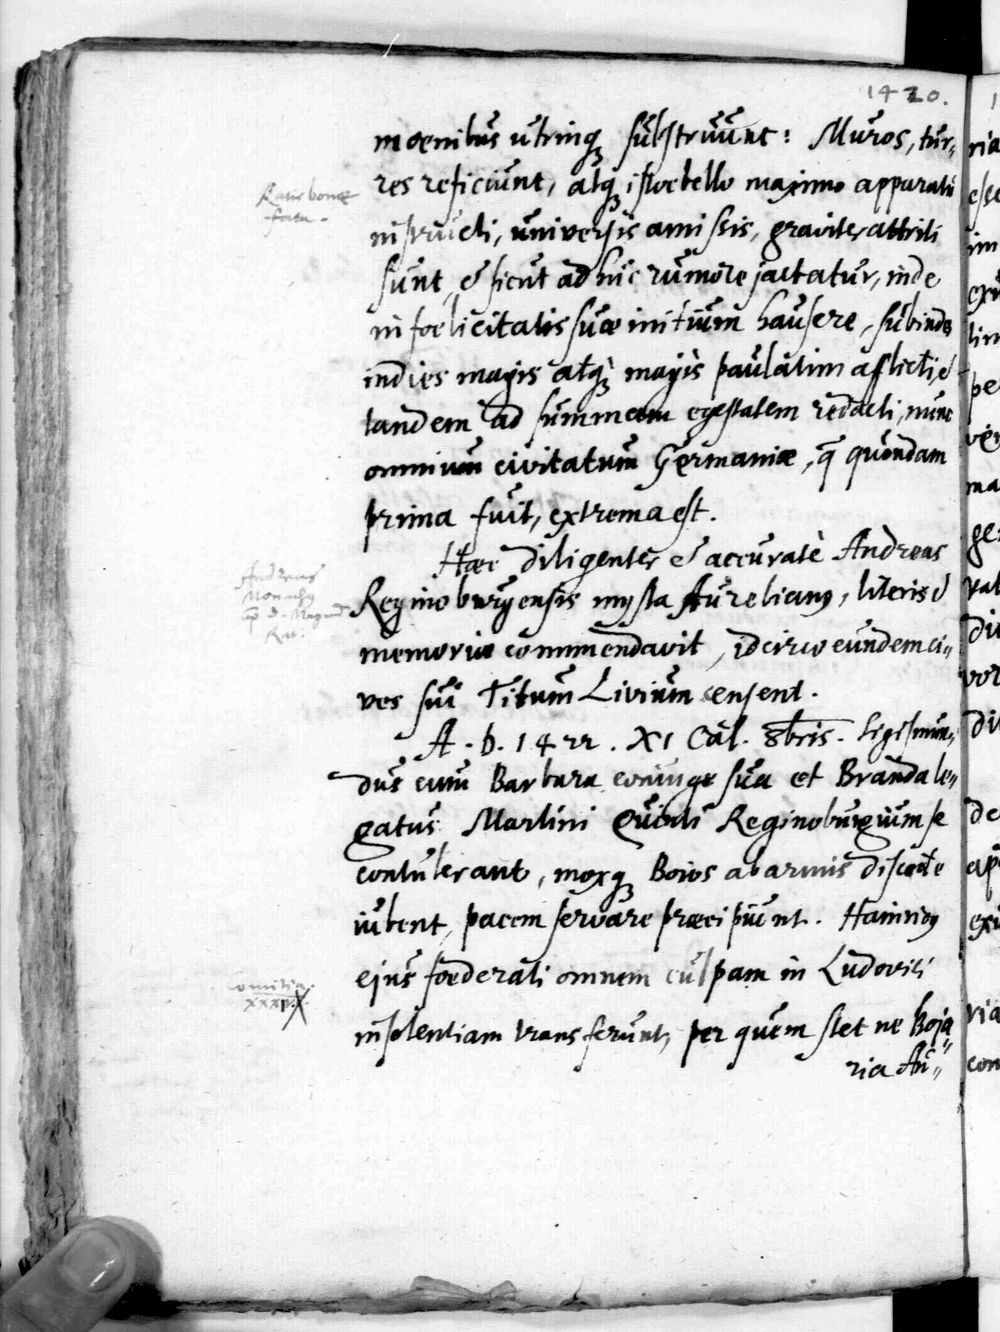 1420.
moenibus utrinq substruunt: Muros, tur„
res reficiunt, atq istoc bello maximo apparatu
instructi, universis amissis, graviter attriti
sunt, & sicut ad hic rumore jactatur, inde
infoelicitatis suæ initium hausere, subinde
indies magis atq magis paulatim aflicti, &
tandem ad summam egestatem redacti, nunc
omnium civitatum Germaniæ, q quondam
prima fuit, extrema est.
Hæc diligenter & accuratè Andreas
Reginoburgensis mysta Aurelianus, literis &
memoriæ commendavit, idcirco eundem ci„
ves sui Titum Livium censent.
A. D. 1422. XI Cal. 8bris. Sigismun„
dus cum Barbara coniuge sua et Branda le„
gatus Martini Quinti Reginoburgium se
contulerant, moxq Boios ab armis discedere
iubent, pacem servare præcipiunt. Hainricus
ejus foederati omnem culpam in Ludovici
insolentiam transferunt, per quem stet ne Boja„
ria Au„
Ratisbonæ
fata.
Andreas
Monachus
S. Magni
Rat.
comitia